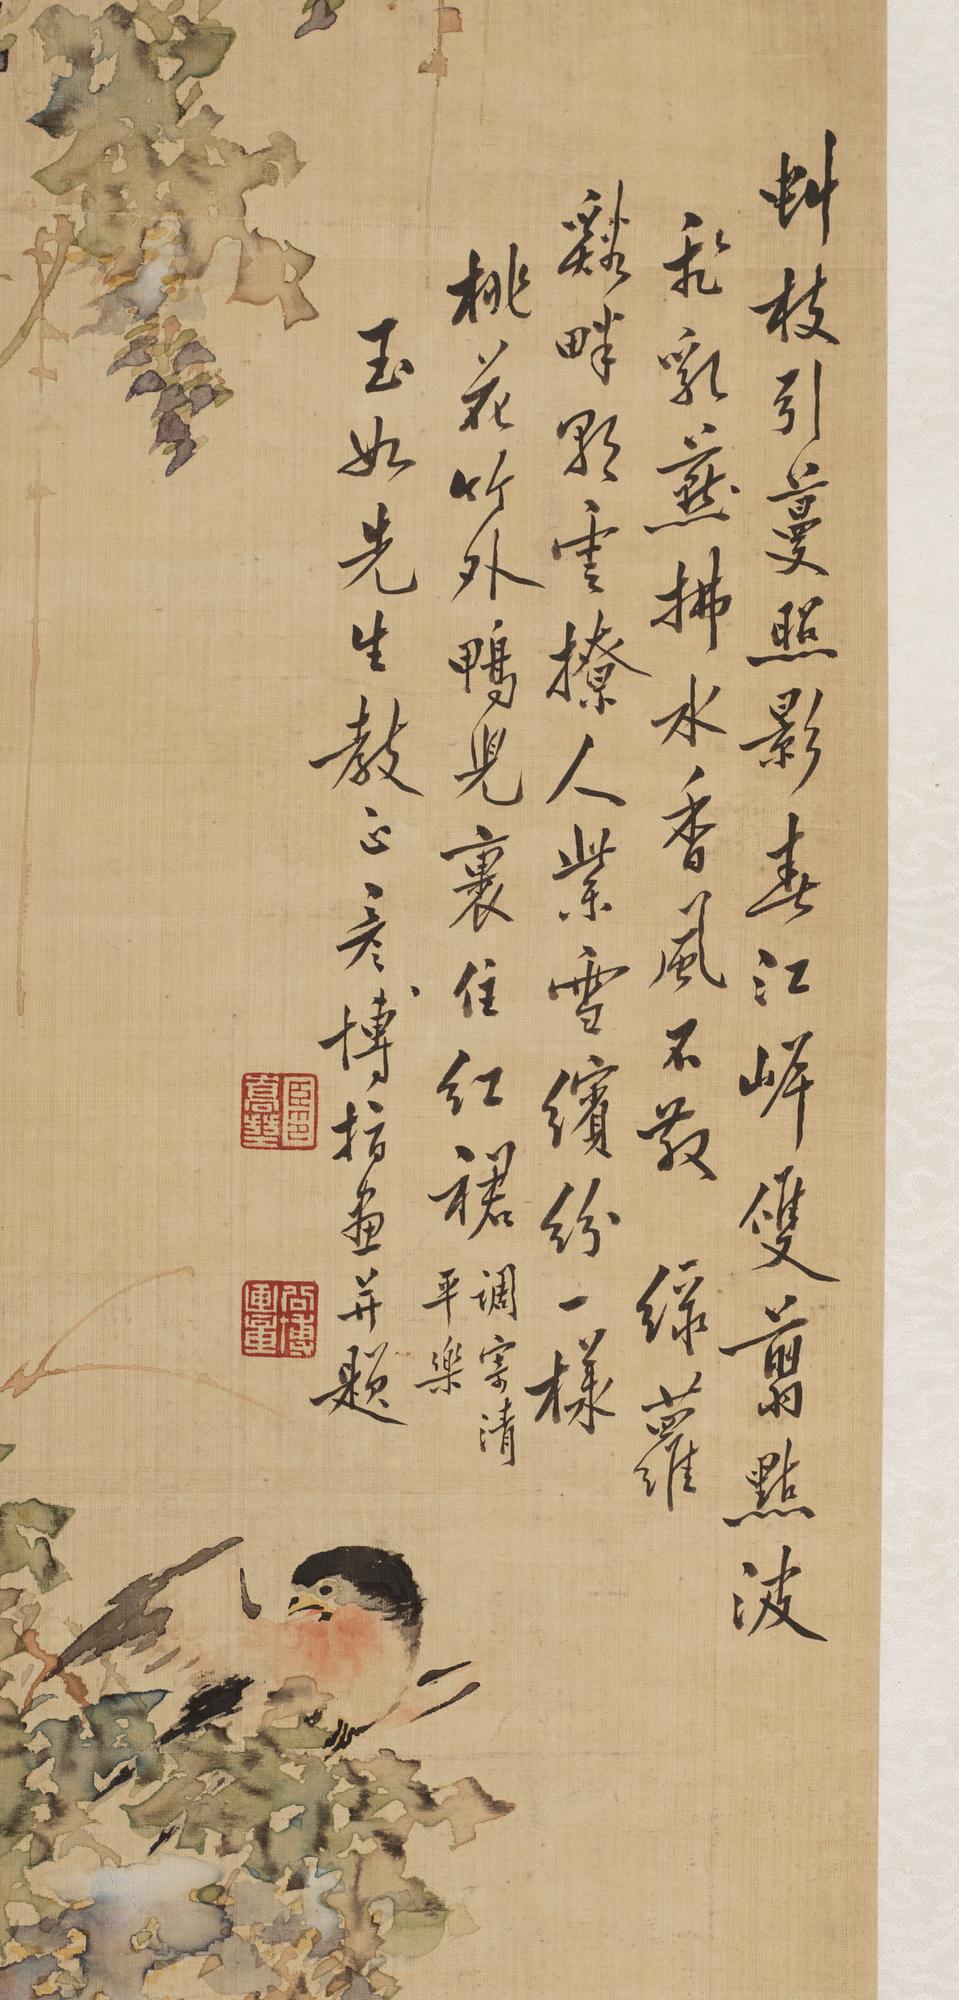 虯枝引蔓照影春江岸雙翦點波
飛乳燕拂水香風不散　綠蘿
谿畔影雲撩人紫雪繽紛一樣
桃花竹外鴨兒裹住紅裙
調寄清
平樂
玉如先生教正彥博指畫并題